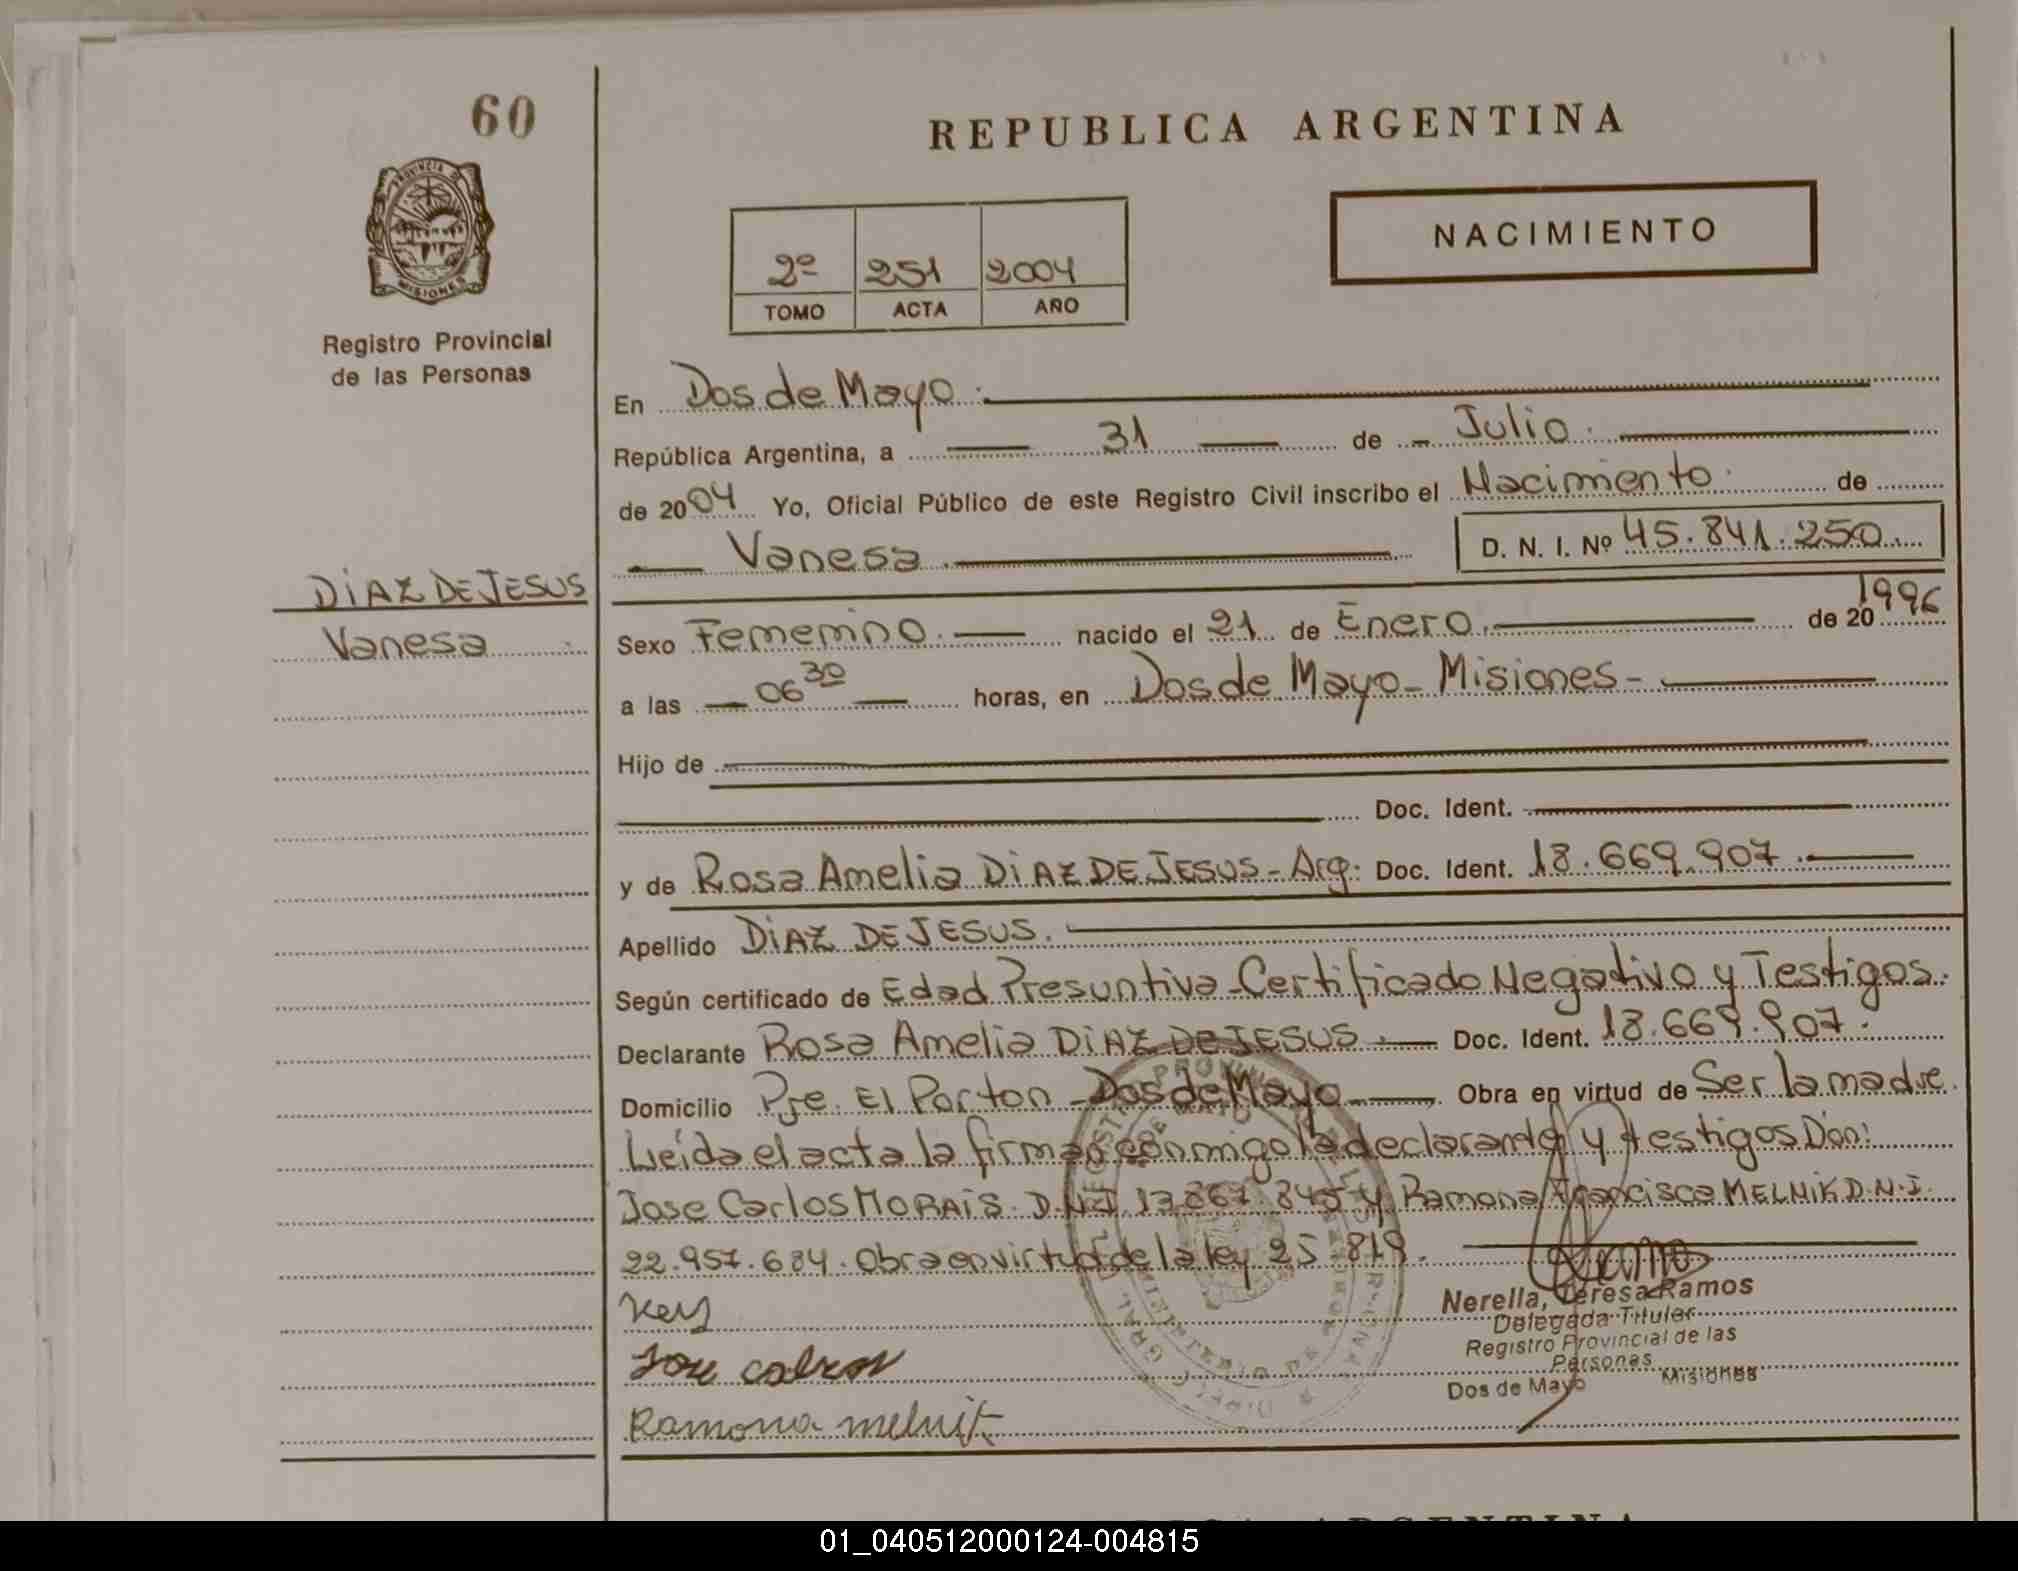 60
REPUBLICA ARGENTINA
NACIMIENTO
2º 251 2004
TOMO ACTA AÑO
Registro Provincial
de las Personas
En Dos de Mayo.
República Argentina, a 31 de Julio.
de 2004 Yo, Oficial Público de este Registro Civil inscribo el Nacimiento. de
Vanesa. D. N. I. Nº 45.841.250.
DIAZ DE JESUS
Vanesa
Sexo Femenino. nacido el 21 de Enero. de 20 1996
a las 06 30 horas, en Dos de Mayo - Misiones -
Hijo de
Doc. Ident.
y de Rosa Amelia DIAZ DE JESUS - Arg: Doc. Ident. 18.669.907.
Apellido DIAZ DE JESUS.
Según certificado de Edad Presuntiva - Certificado Negativo y Testigos.
Declarante Rosa Amelia DIAZ DE JESUS. Doc. Ident. 18.669.907.
Domicilio Pje. El Porton - Dos de Mayo Obra en virtud de Ser la madre.
Leída el acta la firman conmigo la declarante y testigos Don:
Jose Carlos MORAIS. D.N.I 13.867.845 y Ramona Francisca MELNIK D.N.I.
22.957.684. Obra en virtud de la ley 25.819.
Nerella, Teresa Ramos
Delegada Titular
Registro Provincial de las
Personas
Dos de Mayo Misiones
Ramona melnik
01_040512000124-004815